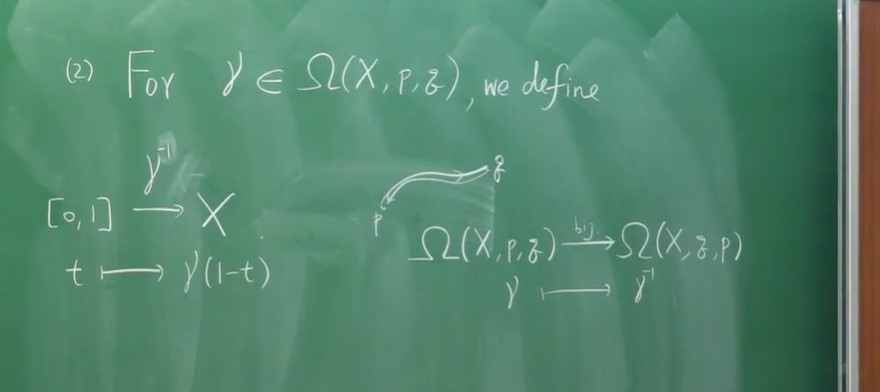 (2) For γ ∈ Ω(X, p, q), we define
[0,1] —γ⁻¹→ X
t ⟼ γ(1-t)
p q
Ω(X, p, q) —bij.→ Ω(X, q, p)
γ ⟼ γ⁻¹